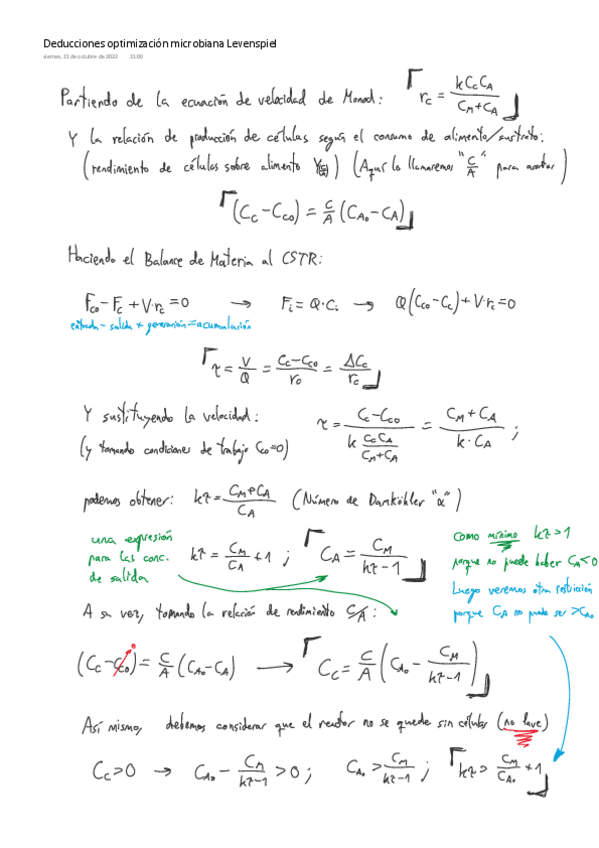 Deducciones optimización microbiana Levenspiel
viernes, 13 de octubre de 2023 21:00
Partiendo de la ecuación de velocidad de Monod: r_c = k C_c C_A / (C_M + C_A)
Y la relación de producción de células según el consumo de alimento/sustrato:
(rendimiento de células sobre alimento Y(C/A)) (Aquí lo llamaremos "C/A" para acortar)
(C_c - C_c0) = C/A (C_A0 - C_A)
Haciendo el Balance de Materia al CSTR:
F_c0 - F_c + V·r_c = 0 → F_i = Q·C_i → Q(C_c0 - C_c) + V·r_c = 0
entrada - salida + generación = acumulación
τ = V/Q = (C_c - C_c0)/r_c = ΔC_c/r_c
Y sustituyendo la velocidad:
(y tomando condiciones de trabajo C_c0=0)
τ = (C_c - C_c0) / (k C_c C_A / (C_M + C_A)) = (C_M + C_A) / (k·C_A) ;
podemos obtener: kτ = (C_M + C_A)/C_A (Número de Damköhler "α")
una expresión
para las conc.
de salida
kτ = C_M/C_A + 1 ; C_A = C_M/(kτ - 1)
como mínimo kτ > 1
porque no puede haber C_A < 0
Luego veremos otra restricción
porque C_A no puede ser > C_A0
A su vez, tomando la relación de rendimiento C/A:
(C_c - C_c0) = C/A (C_A0 - C_A) → C_c = C/A (C_A0 - C_M/(kτ - 1))
Así mismo, debemos considerar que el reactor no se quede sin células (no lave)
C_c > 0 → C_A0 - C_M/(kτ - 1) > 0 ; C_A0 > C_M/(kτ - 1) ; kτ > C_M/C_A0 + 1